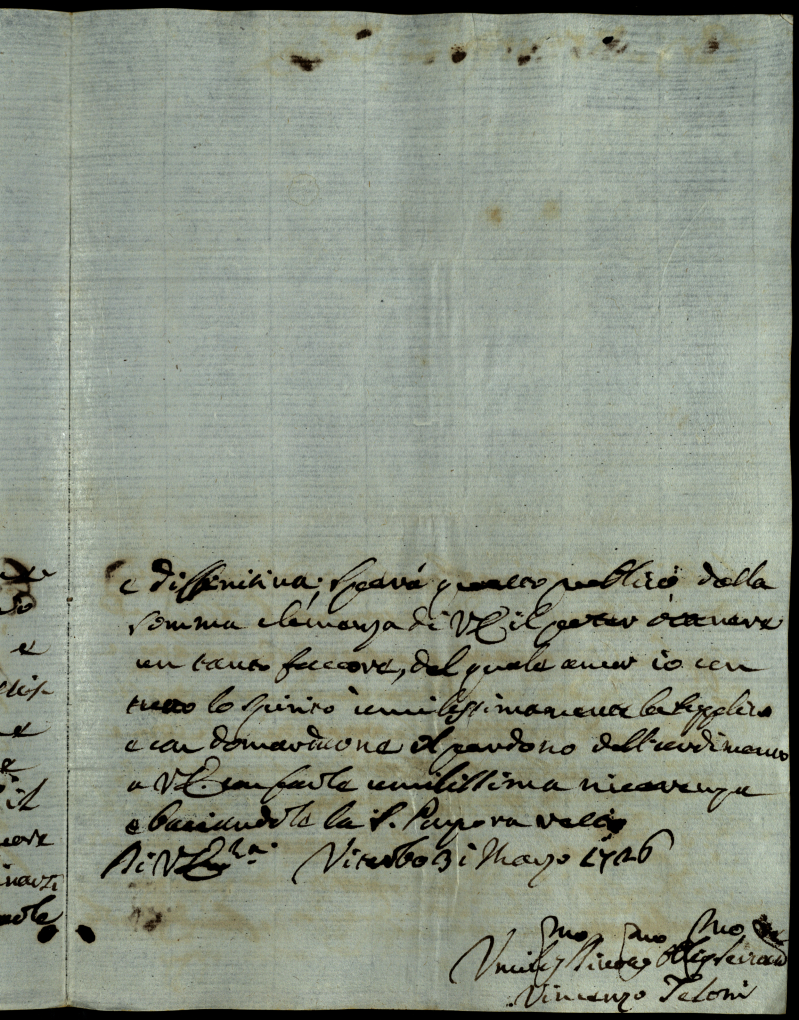 e diffinitiva; sperà questo publico dalla
somma clemenza di VE il poter ottenere
un tanto favore, del quale ancor io con
tutto lo spirito umilissimamente la supplico
e con domandarne il perdono dell'ardimento
a VE. con farle umilissima riverenza
e baciandole la S. Porpora resto
Di VE Viterbo 31 Marzo 1726
Vincenzo Teloni